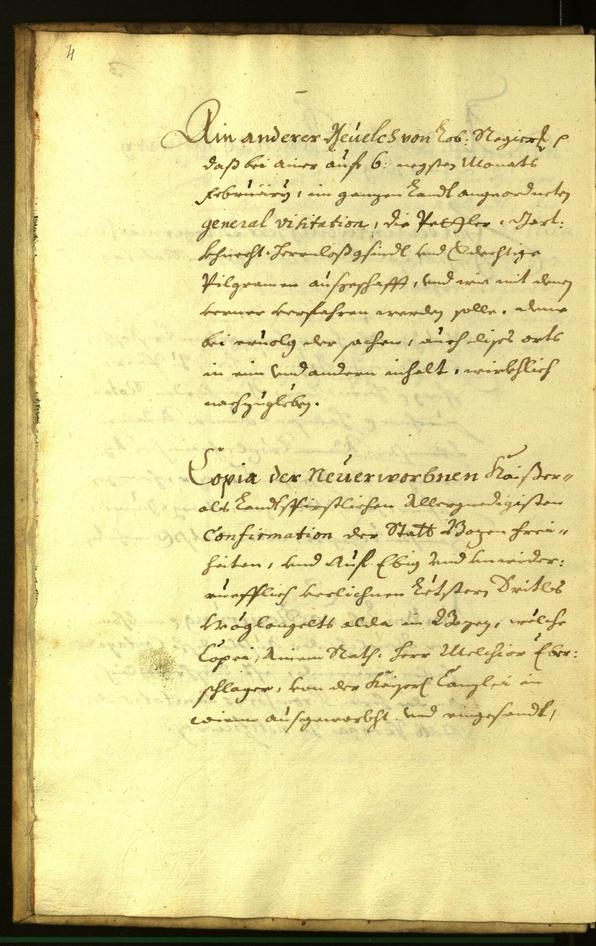 4
Ain anderer Beuelch von Lob: Regierung
daß bei ainer auf 6: negsten Monats
Februarÿ, im ganzen Landt angeordneten
general visitation, die Pettler, Gart-
khnecht, Herrnloß gsindl und
Pilgramen außgeschafft, und wie mit denen
ferner verfahren werden solle, deme
bei ervolg der sachen, auch dises orts
in ein und andern inhalt, würkhlich
nachzugleben.
Copia der Neuerworbnen Kaißer-
als Landtsfürstlichen Allergnedigisten
Confirmation der Statt Bozen frei-
heiten, und Auf Ebig und unwider-
rueflich verlichnen Letsten Dritls
Umbgelts alda in Bozen, welche
Copei, ainem Rath, Herr Melchior Eber-
schlager, von der Kaiserl Canzlei in
Wienn außgewürkht und eingesandt,